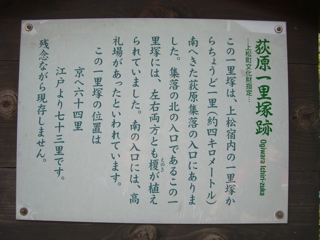 荻原一里塚跡
Ogiwara Ichiri-zuka
上松町文化財指定…
この一里塚は、上松宿内の一里塚か
らちょうど一里（約四キロメートル）
南へきた荻原集落の入口にありま
した。集落の北の入口であるこの一
里塚には、左右両方とも榎が植え
えのき
られていました。南の入口には、高
札場があったといわれています。
この一里塚の位置は
京へ六十四里
江戸より七十三里です。
残念ながら現存しません。